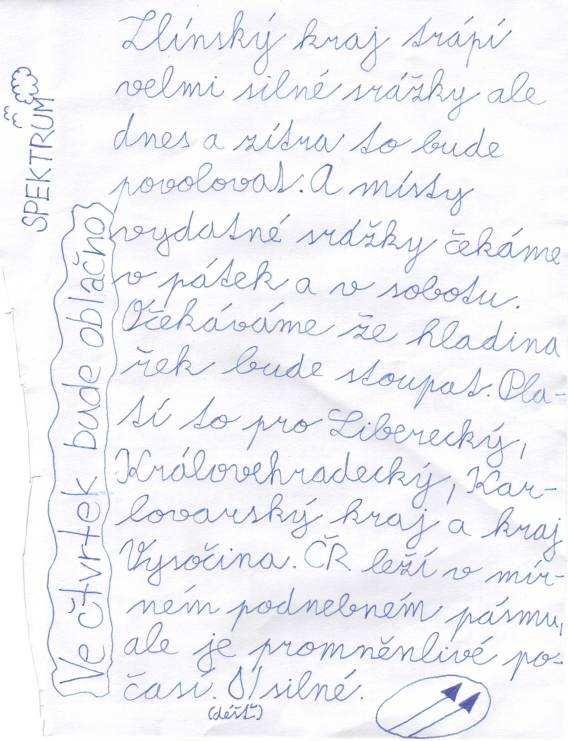 SPEKTRUM
Ve čtvrtek bude oblačno
Zlínský kraj trápí
velmi silné srážky ale
dnes a zítra to bude
povolovat. A místy
vydatné srážky čekáme
v pátek a v sobotu.
Očekáváme že hladina
řek bude stoupat. Pla-
tí to pro Liberecký,
Královehradecký, Kar-
lovarský kraj a kraj
Vysočina. ČR leží v mír-
ném podnebném pásmu,
ale je promněnlivé po-
časí. silné.
(déšť)